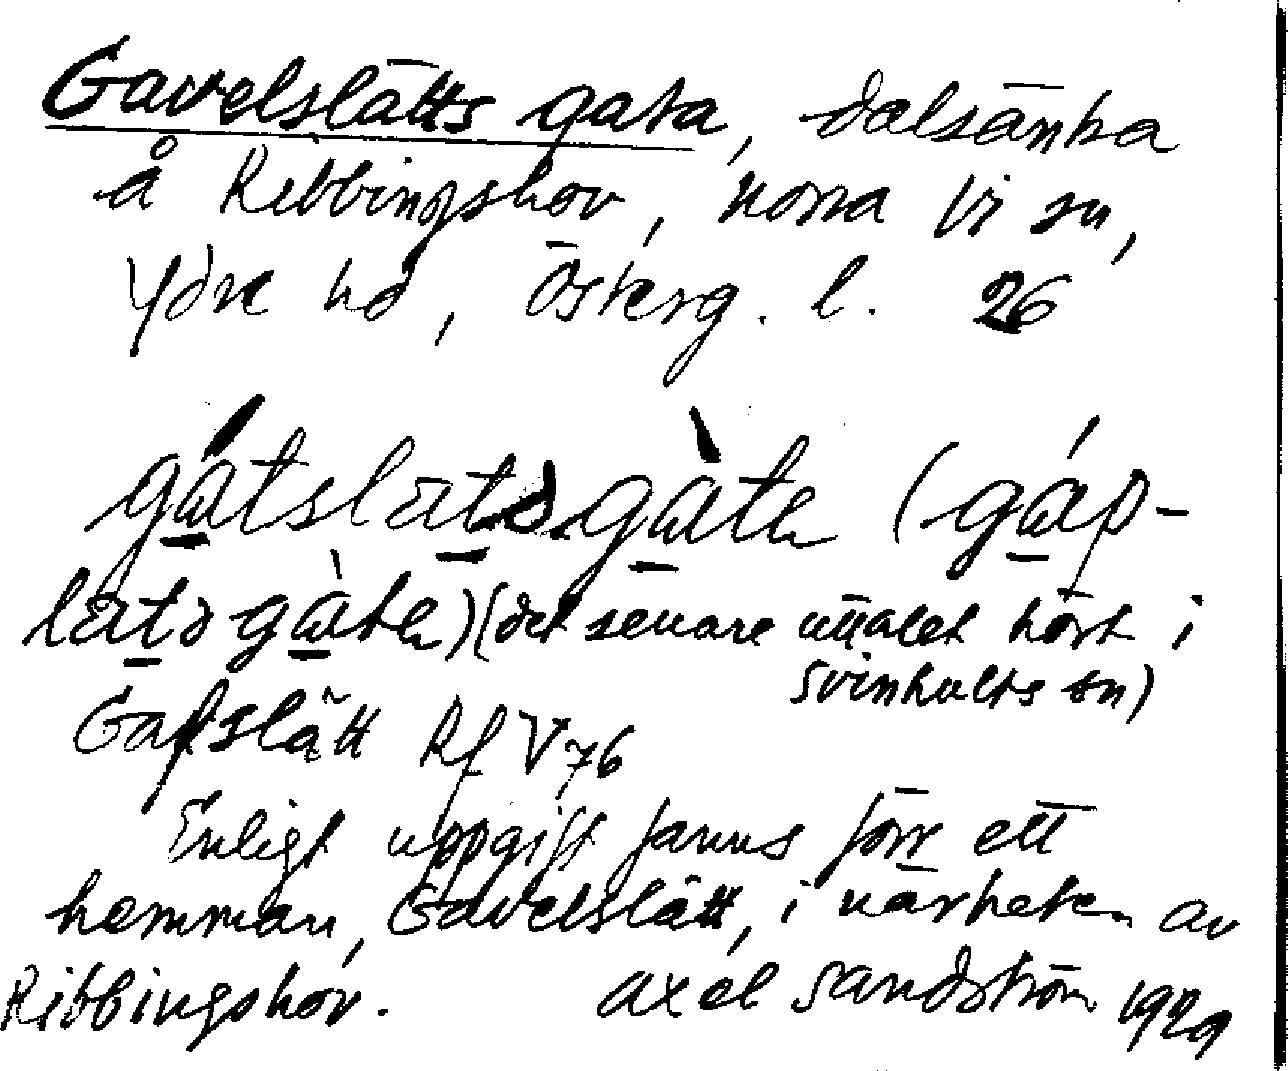 Gavelslätts gata, dalsänka
å Ribbingshov, Norra Vi sn,
Ydre hd, Österg. l. 26
gátslætsgàta (gáp-
læts gàta) (det senare uttalet hört i
Svinhults sn)
Gafslätt Rf V 76
Enligt uppgift fanns förr ett
hemman, Gavelslätt, i närheten av
Ribbingshov. Axel Sandström 1929